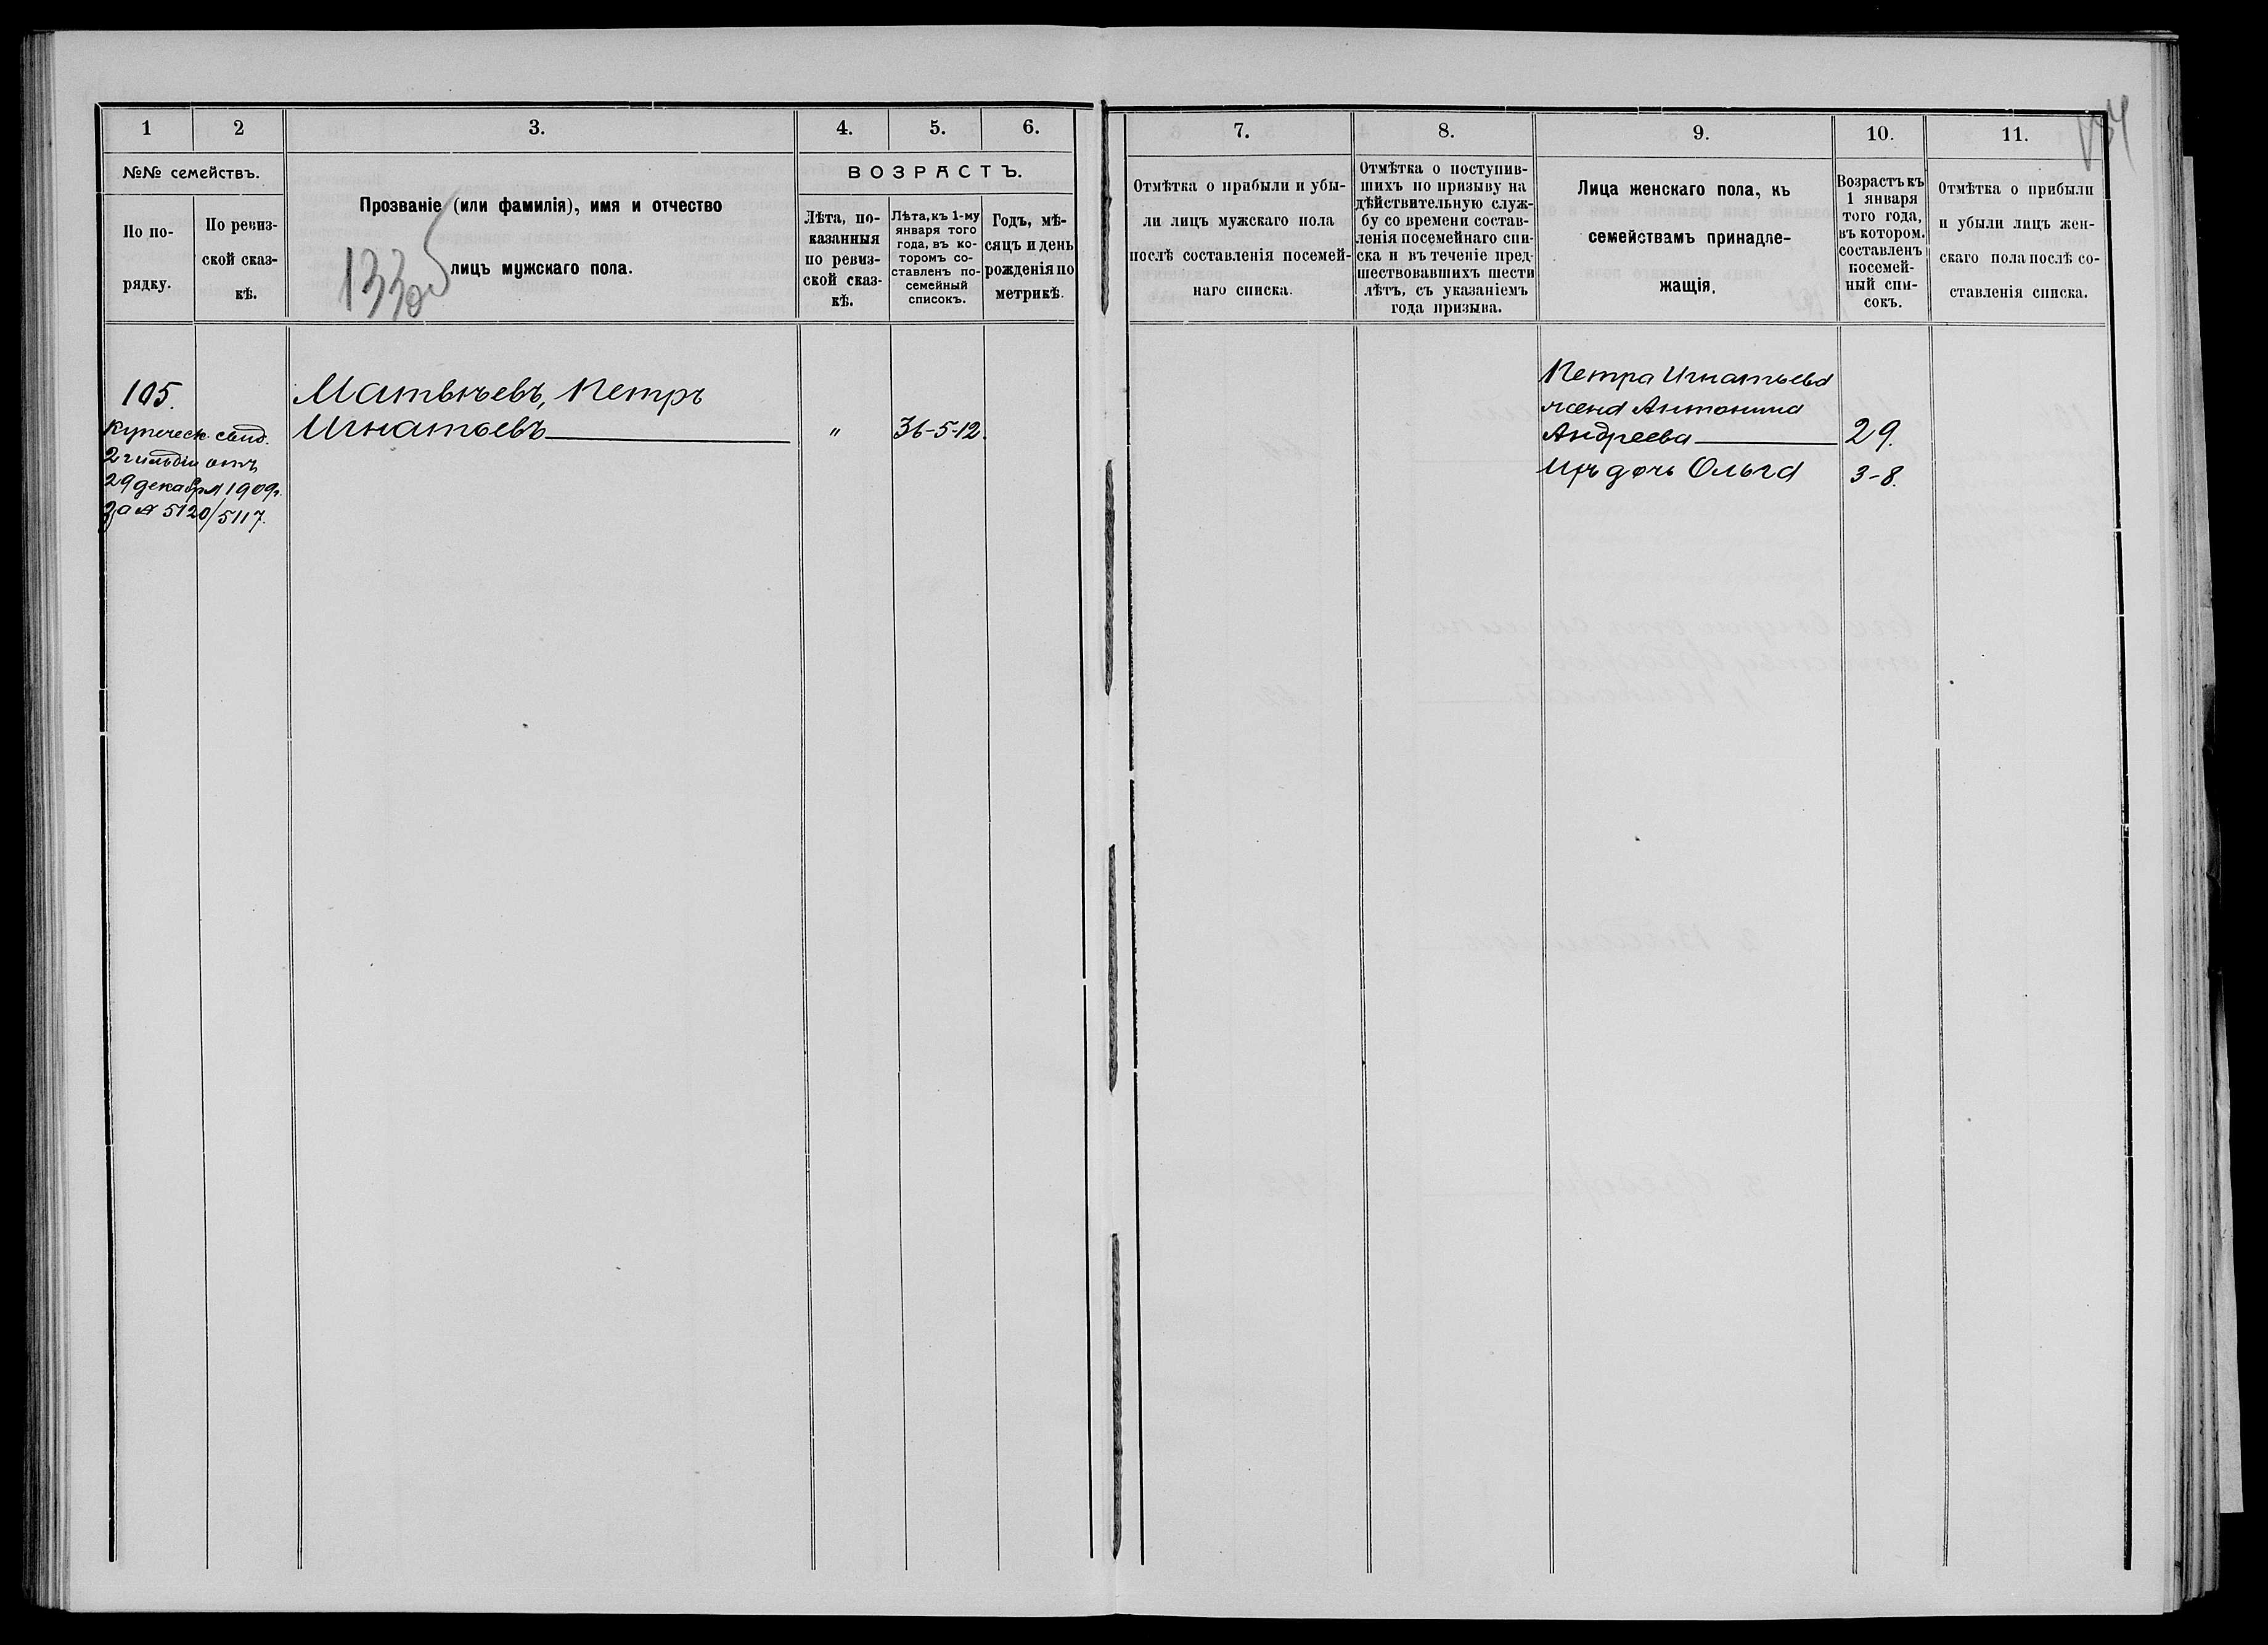 1
2
3.
4.
5.
6.
№№ семействъ.
По по-
рядку.
По ревиз-
ской сказ-
кѣ.
Прозваніе (или фамилія), имя и отчество
лицъ мужскаго пола.
ВОЗРАСТЪ.
Лѣта, по-
казанныя
по ревиз-
ской сказ-
кѣ.
Лѣта, къ 1-му
января того
года, въ ко-
торомъ со-
ставленъ по-
семейный
списокъ.
Годъ, мѣ-
сяцъ и день
рожденія по
метрикѣ.
105.
Купеческ. свид.
2 гильдіи отъ
29 декабря 1909г.
за № 5120/5117.
Матвѣевъ, Петръ
Игнатьевъ
"
36-5-12.
7.
8.
9.
10.
11.
Отмѣтка о прибыли и убы-
ли лицъ мужскаго пола
послѣ составленія посемей-
наго списка.
Отмѣтка о поступив-
шихъ по призыву на
дѣйствительную служ-
бу со времени состав-
ленія посемейнаго спи-
ска и въ теченіе пред-
шествовавшихъ шести
лѣтъ, съ указаніемъ
года призыва.
Лица женскаго пола, къ
семействамъ принадле-
жащія.
Возрастъ къ
1 января
того года,
въ котором.
составленъ
посемей-
ный спи-
сокъ.
Отмѣтка о прибыли
и убыли лицъ жен-
скаго пола послѣ со-
ставленія списка.
Петра Игнатьева
жена Антонина
Андреева
29.
Ихъ дочь Ольга
3-8.